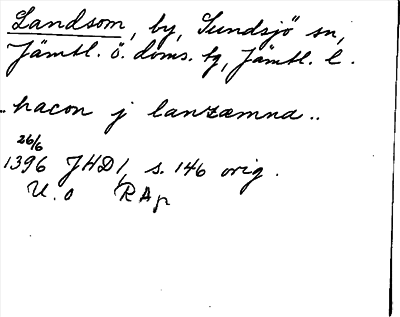 Landsom, by, Sundsjö sn,
Jämtl. ö. doms. tg, Jämtl. l.
.. hacon j lanzæmna ..
26/6
1396 JHD 1, s. 146 orig.
U. o RAp